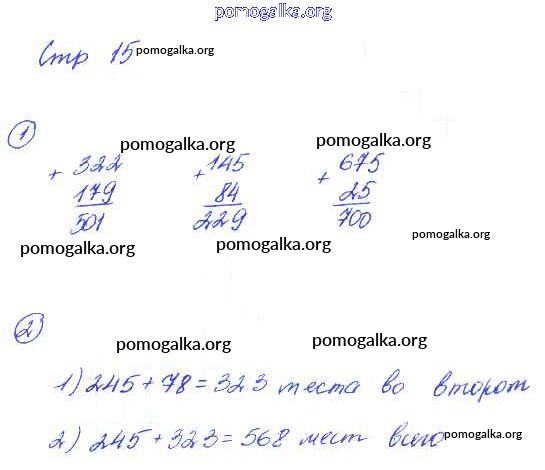 pomogalka.org
Стр 15 pomogalka.org
1
pomogalka.org pomogalka.org
+ 322 + 145 + 675
179 84 25
501 229 700
pomogalka.org pomogalka.org pomogalka.org
2
pomogalka.org pomogalka.org
1) 245 + 78 = 323 места во втором
2) 245 + 323 = 568 мест всего pomogalka.org